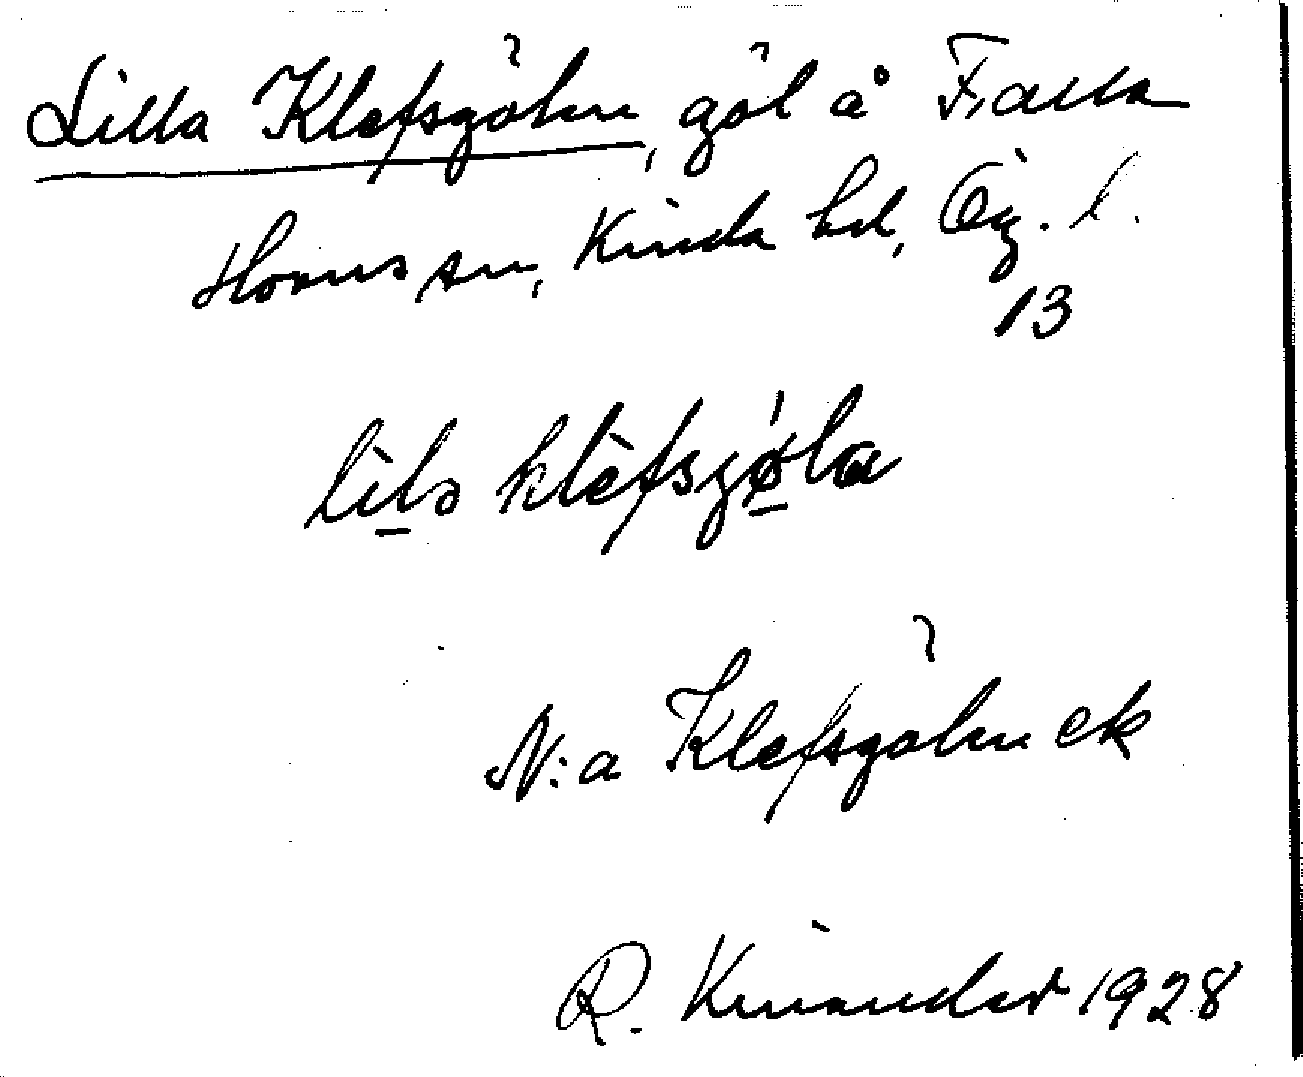 Lilla Klefsgölen, göl å Falla
Horns sn, Kinda hd, Ög. l.
13
lila klefsgøla
N:a Klefsgölen ek
R. Kinander 1928